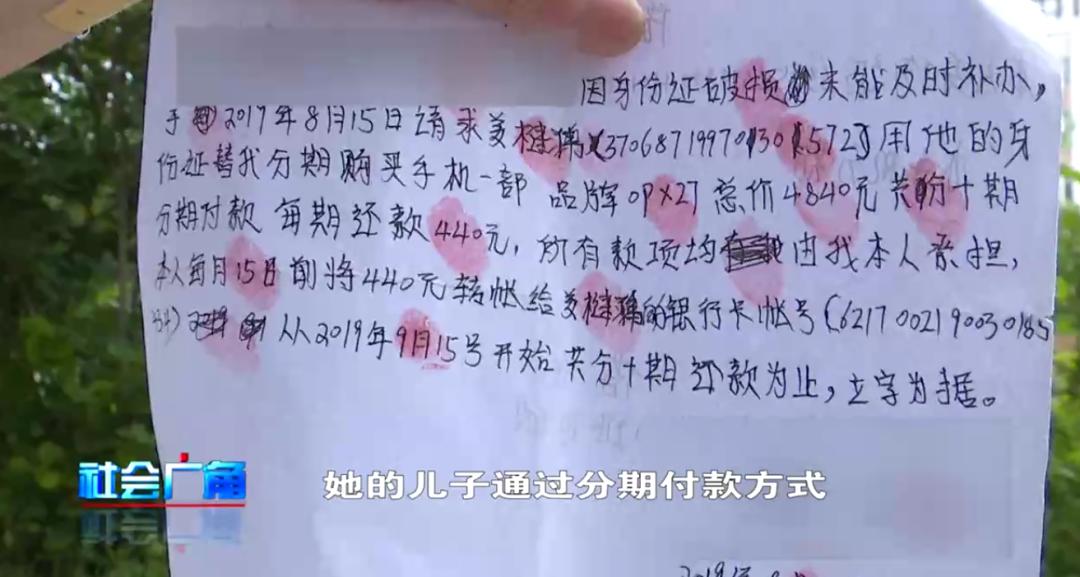 因身份证破损未能及时补办，
于2017年8月15日请求姜(370687199701301572)用他的身
份证替我分期购买手机一部 品牌OPX27 总价4840元 共分十期
分期付款 每期还款440元，所有款项均由我本人承担，
本人每月15日前将440元转帐给姜的银行卡帐号(6217002190030185
从2019年9月15号开始共分十期还款为止，立字为据。
社会广角
她的儿子通过分期付款方式